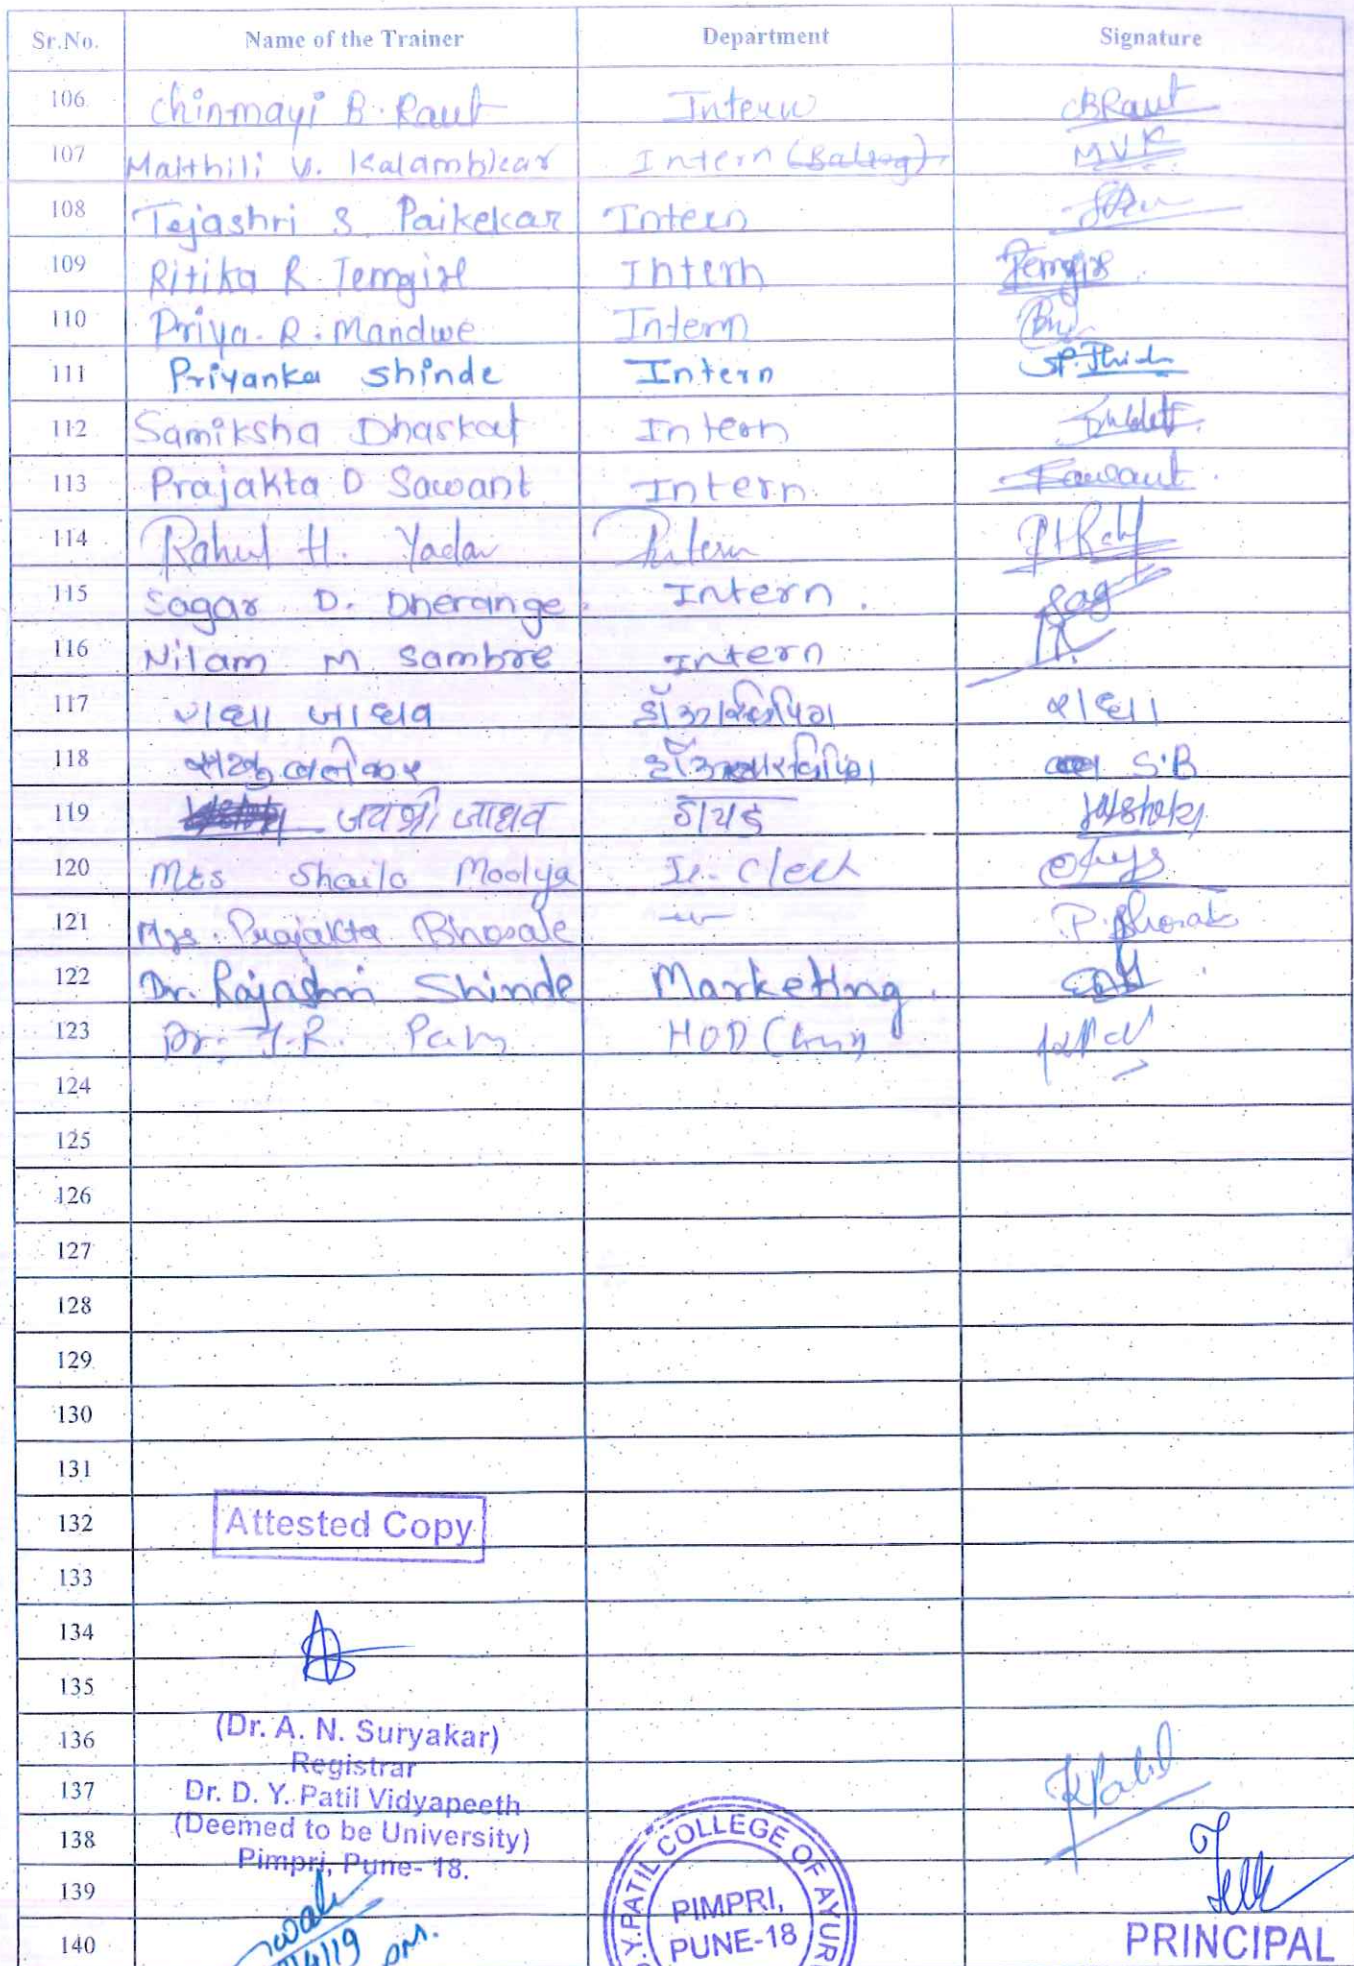 Sr.No. Name of the Trainer Department Signature
106 Chinmayi B. Raut Intern CBRaut
107 Maithili V. Kalambkar Intern MVK
108 Tejashri S Paikekar Intern
109 Ritika R. Temgire Intern Temgire
110 Priya. R. Mandwe Intern
111 Priyanka Shinde Intern
112 Samiksha Dhaskat Intern
113 Prajakta D Sawant Intern. Sawant
114 Rahul H. Yadav Intern
115 Sagar D. Dherange. Intern. Sag
116 Nilam M Sambre Intern
117 राधा जाधव राधा
118 S.B
119 जयश्री जाधव
120 Mrs Shaila Moolya Jr. Clerk
121 Mrs. Prajakta Bhosale P. Bhosale
122 Dr. Rajashri Shinde Marketing.
123 Dr. J.R. HOD
124
125
126
127
128
129
130
131
132 Attested Copy
133
134
135
136 (Dr. A. N. Suryakar)
Registrar
137 Dr. D. Y. Patil Vidyapeeth
138 (Deemed to be University)
Pimpri, Pune- 18.
139
140
Y.PATIL COLLEGE OF AYUR
PIMPRI,
PUNE-18
PRINCIPAL